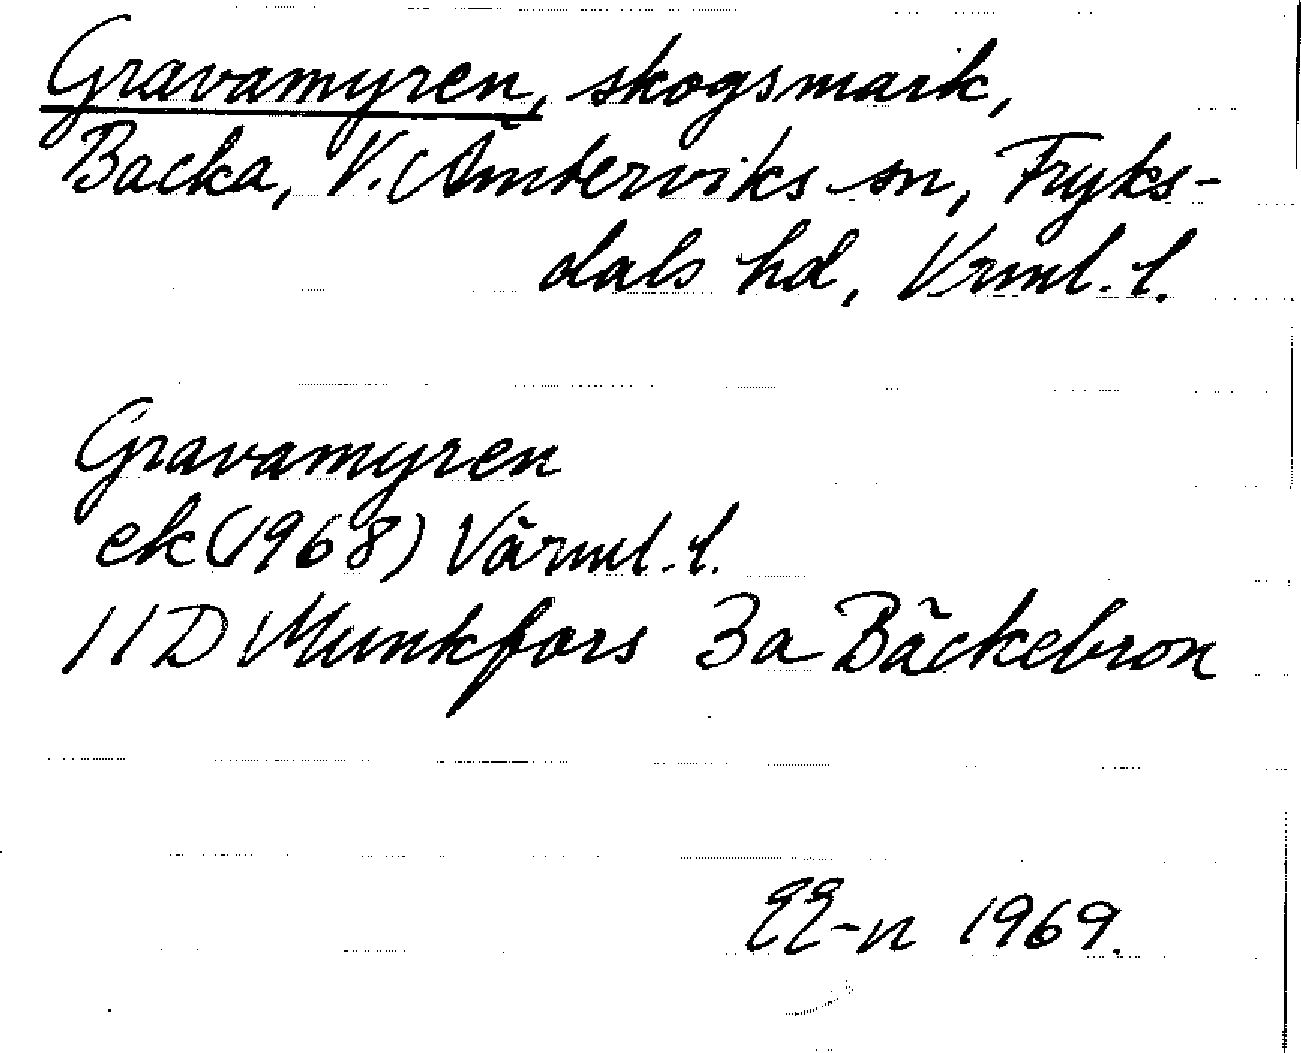 Gravamyren, skogsmark,
Backa, V. Ämterviks sn, Fryks-
dals hd, Vrml. l.
Gravamyren
ek (1968) Värml. l.
11D Munkfors 3a Bäckebron
EE-n 1969.